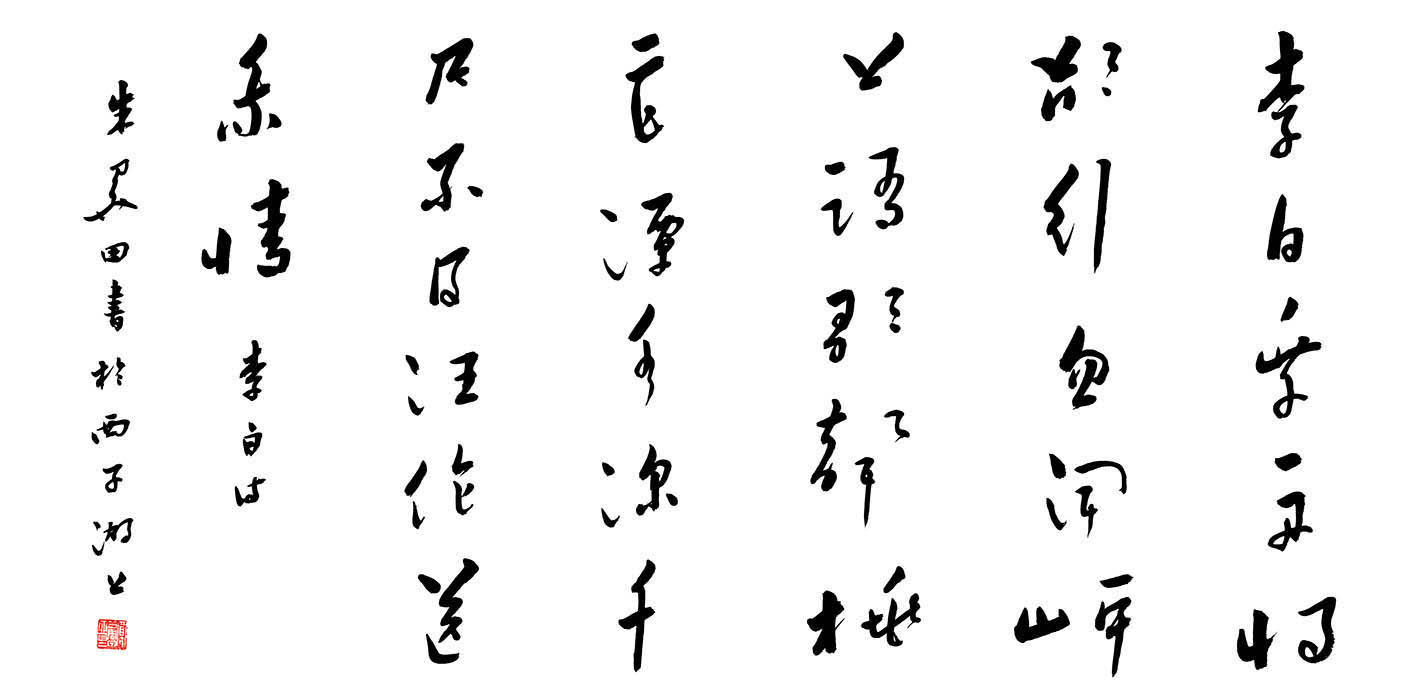 李白乘舟將
欲行忽聞岸
上踏歌聲桃
花潭水深千
尺不及汪倫送
我情 李白詩
朱關田書於西子湖上